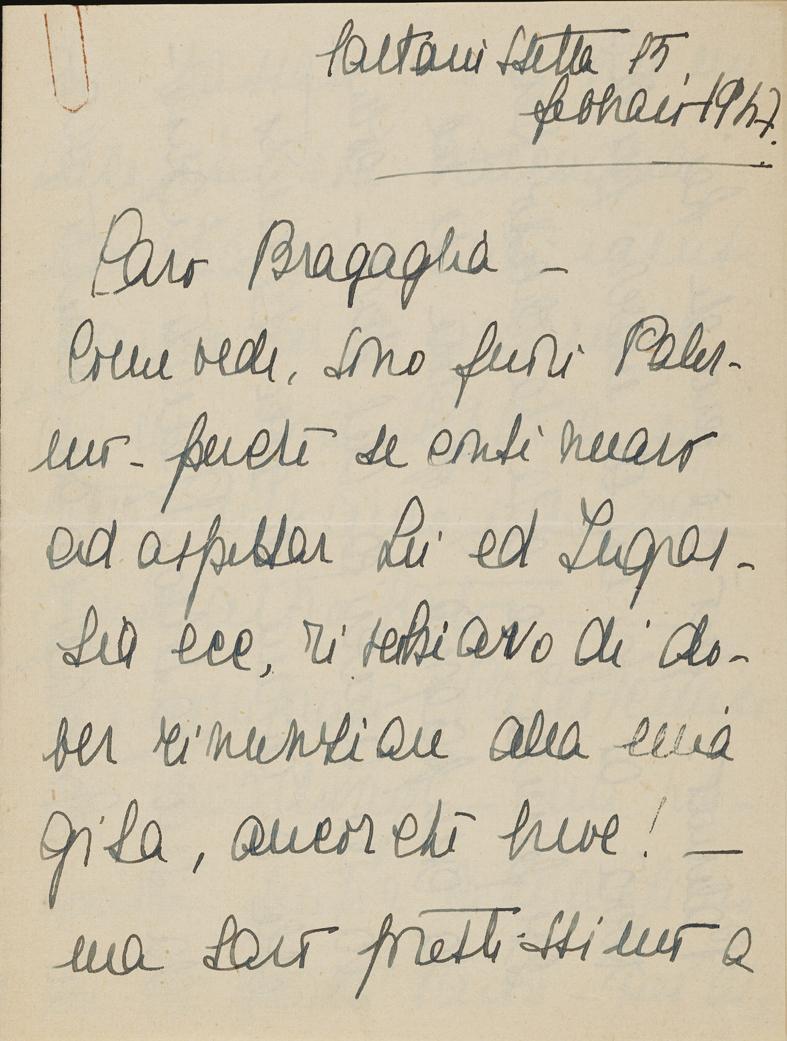 Caltanissetta 15,
febbraio 1947.
Caro Bragaglia –
Come vede, sono fuori Paler-
mo – perché se continuavo
ad aspettar Lei ed Ingras-
sia ecc, rischiavo di do-
ver rinunziare alla mia
gita, ancorché breve! –
ma sarò prestissimo a